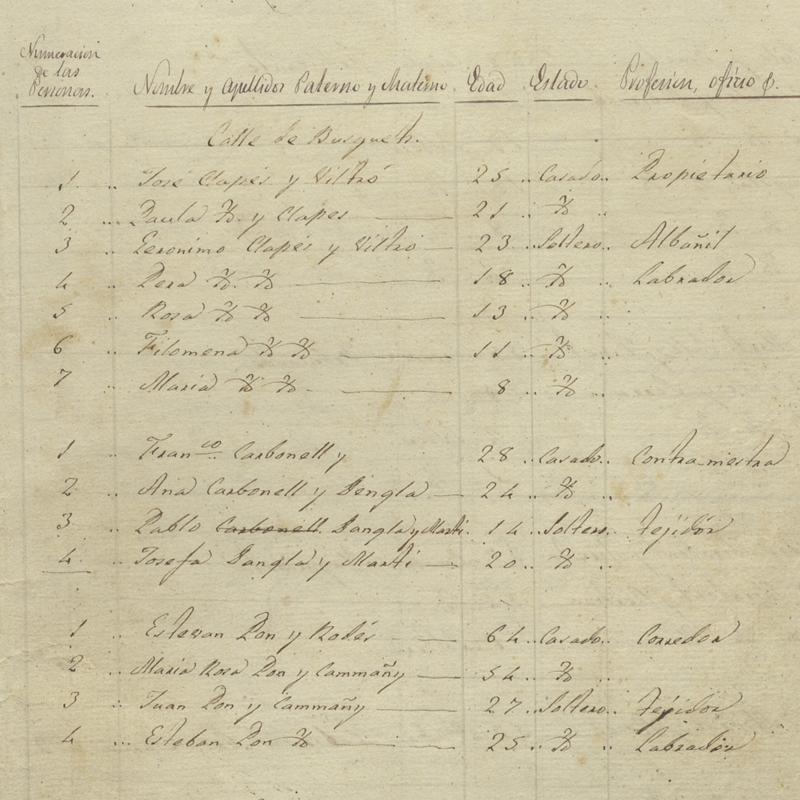 Numeracion de las Personas. Nombre y Apellidos Paterno y Materno Edad Estado Profesion, oficio &.
Calle de Busquets.
1 .. José Clapés y Viltró 25 .. Casado .. Propietario
2 ... Paula Yd. y Clapes 21 .. Yd ..
3 .. Geronimo Clapés y Viltró 23 .. Soltero .. Albañil
4 .. Pera Yd. Yd. 18 .. Yd .. Labrador
5 .. Rosa Yd Yd 13 .. Yd ..
6 .. Filomena Yd Yd 11 .. Yd ..
7 .. Maria Yd Yd. 8 .. Yd ..
1 .. Franco Carbonell y 28 .. Casado .. Contramestra
2 .. Ana Carbonell y 24 .. Yd ..
3 .. Pablo Carbonell y Marti. 14 .. Soltero .. Tejidór
4 .. Josefa y Marti 20 .. Yd ..
1 .. Estevan Pon y Rodés 64 .. Casado .. Corredor
2 .. Maria Rosa Pon y Cammañy 54 .. Yd ..
3 .. Juan Pon y Cammañy 27 .. Soltero .. Tejidor
4 ... Esteban Pon Yd 25 .. Yd .. Labrador